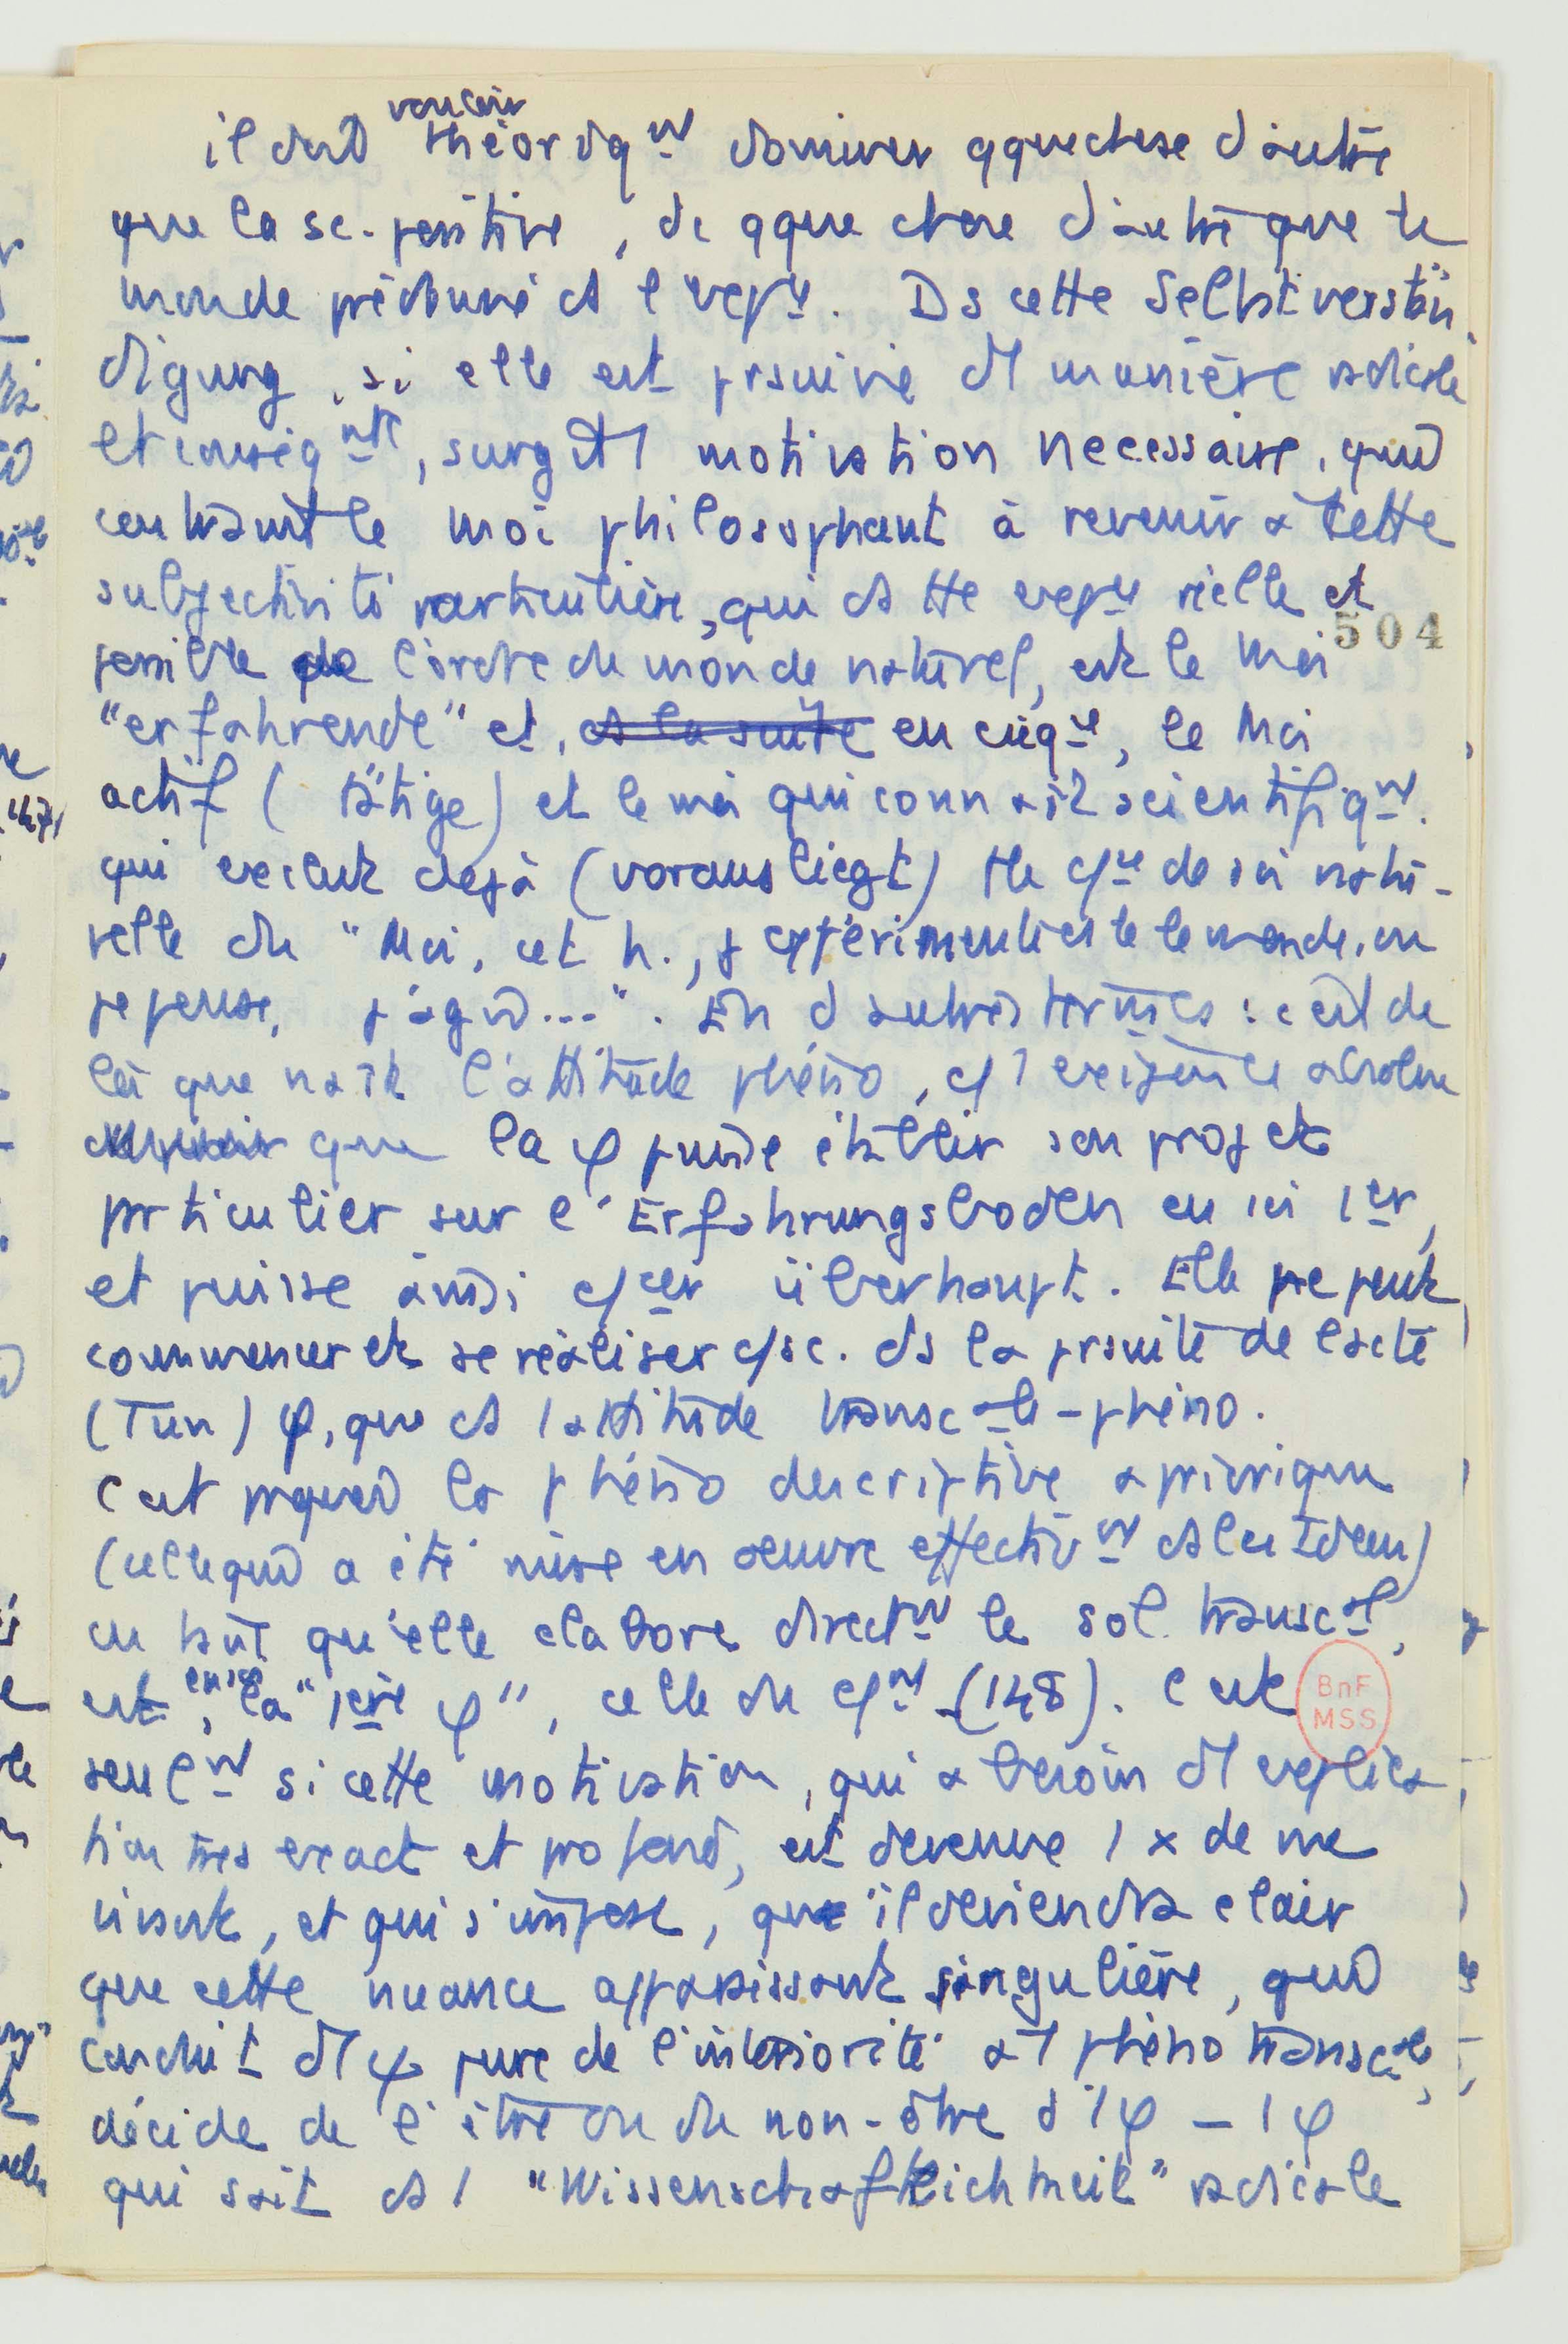 vouloir
il doit théoriqnt dominer qquechose d'autre
que la sc. positive, de qque chose d'autre que le
monde prédonné ds l'expce. Ds cette Selbstverstän
digung, si elle est prsuivie d'1 manière radicale
et conséqnte, surgit 1 motivation necessaire, qui
contraint le moi philosophant à revenir à cette
subjectivité particulière, qui ds tte expce réelle et
possible de l'ordre du monde naturel, est le Moi
504
"erfahrende" et, ds la suite en csqce, le Moi
actif (tätige) et le moi qui connaît scientifiqnt.
qui exclut dejà (vorausliegt) tte csce de soi natu-
relle du "Moi, cet h., j'expérimente le monde, ou
je pense, j'agis...". En d'autres termes : c'est de
là que naît l'attitude phéno, c/ 1 exigence absolue
que la φ puisse établir son projet
prticulier sur l'Erfahrungsboden en soi 1er,
et puisse ainsi c/cer überhaupt. Elle ne peut
commencer et se réaliser c/ sc. ds la prsuite de l'acte
(Tun) φ, que ds l'attitude transcale-phéno.
C'est prquoi la phéno descriptive apriorique
(celle qui a été mise en oeuvre effectivnt ds les Ideen)
en tant qu'elle elabore directnt le sol transcal,
est, en soi la "1ère φ", celle du c/nt (148). C'est
BnF
MSS
seulnt si cette motivation, qui a besoin d'1 explica
tion très exact et profond, est devenue 1 x de vue
vivant, et qui s'impose, que il deviendra clair
que cette nuance apparaissant singulière, qui
conduit d'1 ψ pure de l'intériorité à 1 phéno transcale,
décide de l'être ou du non-être d'1 φ – 1 φ
qui sait ds 1 "Wissenschaftlichkeit" radicale